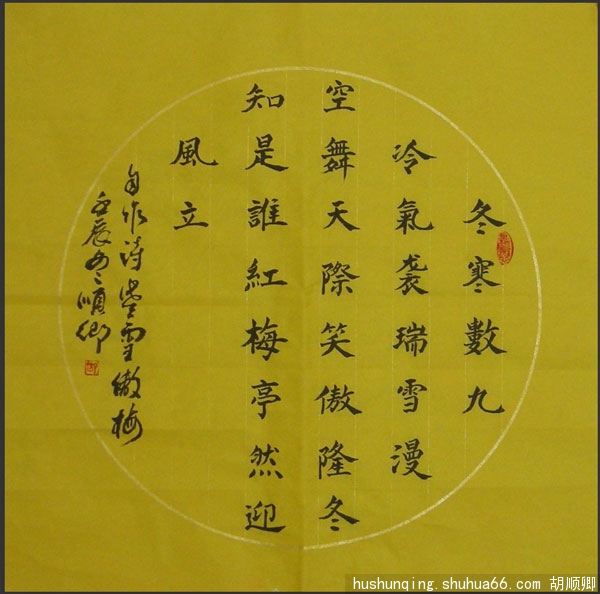 冬寒數九
冷氣袭瑞雪漫
空舞天際笑傲隆冬
知是誰紅梅亭然迎
風立
自作诗雪傲梅
壬辰冬順卿
hushunqing.shuhua66.com 胡顺卿